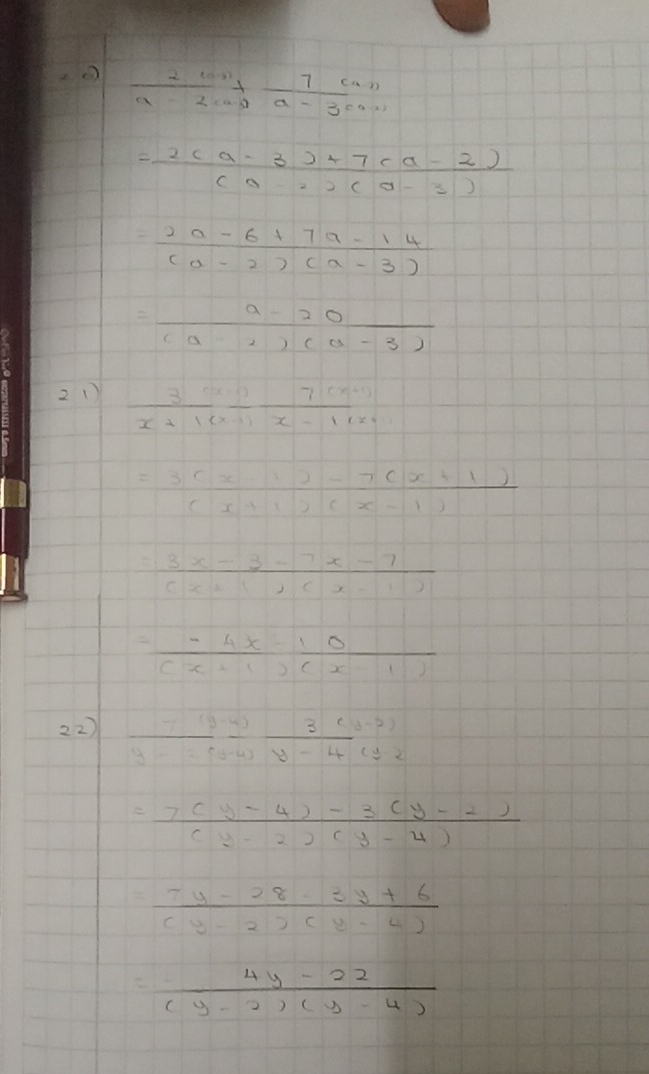 20) 2 (a-3) + 7 (a-2)
a - 2 (a-3) a - 3 (a-2)
= 2 ( a - 3 ) + 7 ( a - 2 )
( a - 2 ) ( a - 3 )
= 2a - 6 + 7a - 14
( a - 2 ) ( a - 3 )
= a - 20
( a - 2 ) ( a - 3 )
21) 3 (x-1) - 7 (x+1)
x + 1 (x-1) x - 1 (x+
= 3 ( x - 1 ) - 7 ( x + 1 )
( x + 1 ) ( x - 1 )
= 3x - 3 - 7x - 7
( x + 1 ) ( x - 1 )
= - 4x - 10
( x + 1 ) ( x - 1 )
22) 7 (y-4) - 3 (y-2)
y - 2 (y-4) y - 4 (y-2
= 7 ( y - 4 ) - 3 ( y - 2 )
( y - 2 ) ( y - 4 )
= 7y - 28 - 3y + 6
( y - 2 ) ( y - 4 )
= 4y - 22
( y - 2 ) ( y - 4 )